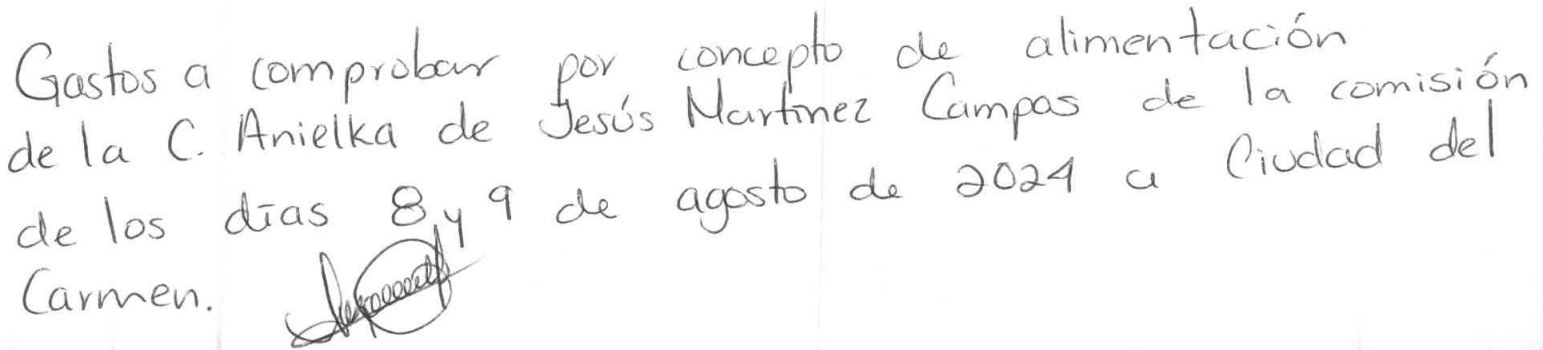 Gastos a comprobar por concepto de alimentación
de la C. Anielka de Jesús Martinez Campos de la comisión
de los días 8 y 9 de agosto de 2024 a Ciudad del
Carmen.